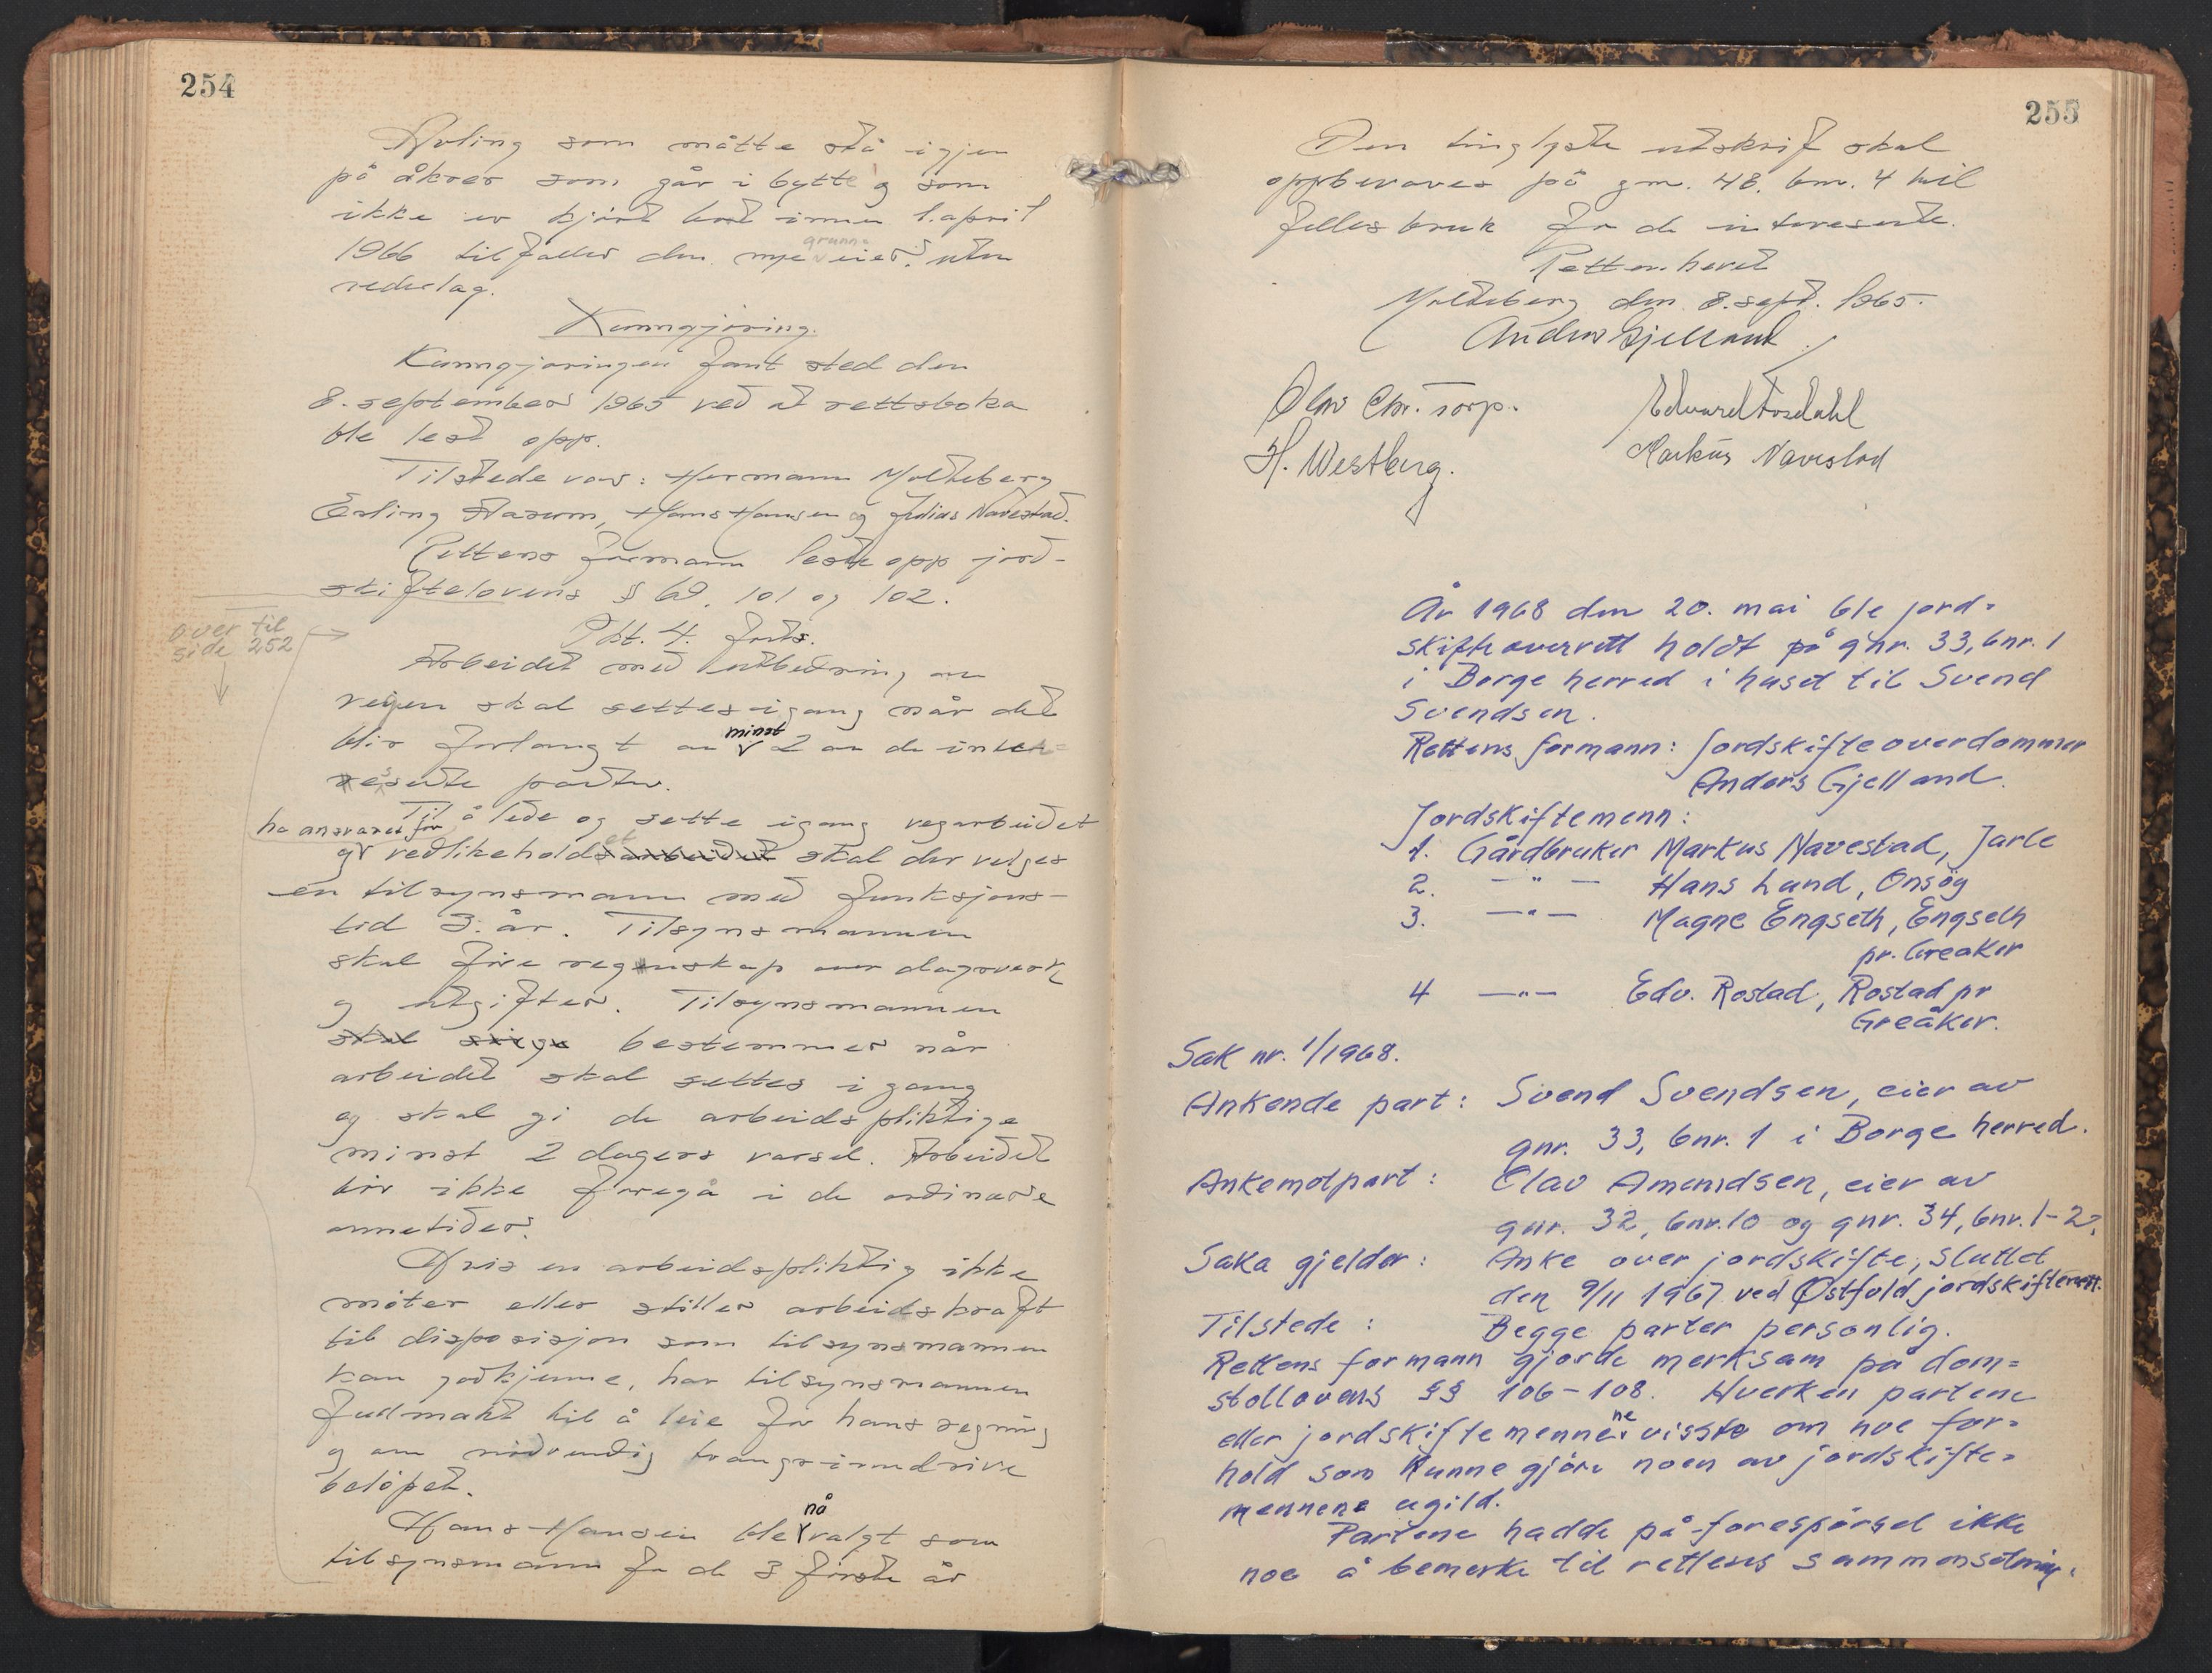 254
Avling som måtte stå igjen
på åkrer som går i bytte og som
ikke er kjørt bort innen 1. april
1966 tilfaller den nye grunn=eier uten
vederlag.
Kunngjøring.
Kunngjøringen fant sted den
8. september 1965 ved at rettsboka
ble lest opp.
Tilstede var: Hermann Molteberg
Erling Aasum, Hans Hansen og Julius Navestad.
Rettens formann leste opp jord-
skiftelovens § 69, 101 og 102.
over til
side 252
Pkt. 4. forts.
Arbeidet med utbedring av
vegen skal settes igang når det
blir forlangt av minst 2 av de inter=
esserte parter.
Til å lede og sette igang vegarbeidet
og ha ansvaret for vedlikeholdet skal der velges
en tilsynsmann med funksjons-
tid 3 år. Tilsynsmannen
skal føre regnskap over dagsverk
og utgifter. Tilsynsmannen
skal sørge bestemmer når
arbeidet skal settes i gang
og skal gi de arbeidspliktige
minst 2 dagers varsel. Arbeidet
bør ikke foregå i de ordinære
onnetider.
Hvis en arbeidspliktig ikke
møter eller stiller arbeidskraft
til disposisjon som tilsynsmannen
kan godkjenne, har tilsynsmannen
fullmakt til å leie for hans regning
og om nødvendig tvangsinndrive
beløpet.
Hans Hansen ble nå valgt som
tilsynsmann for de 3 første år
255
Den tinglyste utskrift skal
oppbevares på gnr. 48. bnr. 4 til
felles bruk for de interesserte.
Retten hevet
Molteberg den 8. sept. 1965.
Anders Gjelland
Olav Chr. Torp.
Edvard Fosdahl
H. Westberg.
Markus Navestad
År 1968 den 20. mai ble jord=
skifteoverrett holdt på gnr. 33, bnr. 1
i Borge herred i huset til Svend
Svendsen.
Rettens formann: Jordskifteoverdommer
Anders Gjelland.
Jordskiftemenn:
1. Gårdbruker Markus Navestad, Jarle
2. —"— Hans Lund, Onsøy
3. —"— Magne Engseth, Engseth
pr. Greåker
4 —"— Edv. Rostad, Rostad pr
Greåker.
Sak nr. 1/1968.
Ankende part: Svend Svendsen, eier av
gnr. 33, bnr. 1 i Borge herred.
Ankemotpart: Olav Amundsen, eier av
gnr. 32, bnr. 10 og gnr. 34, bnr. 1-2.
Saka gjelder: Anke over jordskifte, sluttet
den 9/11 1967 ved Østfold jordskifterett.
Tilstede: Begge parter personlig.
Rettens formann gjorde merksam på dom=
stollovens §§ 106-108. Hverken partene
eller jordskiftemennene visste om noe for=
hold som kunne gjøre noen av jordskifte=
mennene ugild.
Partene hadde på forespørsel ikke
noe å bemerke til rettens sammensetning.